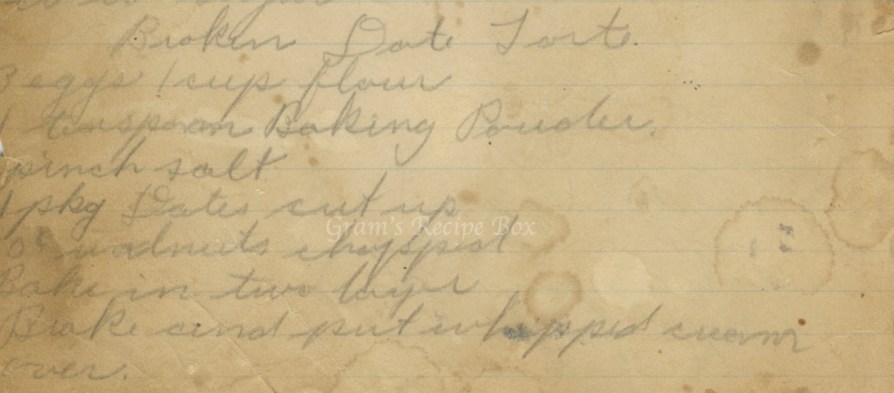 Broken Date Torte.
3 eggs 1 cup flour
1 teaspoon Baking Powder.
pinch salt
1 pkg Dates cut up
walnuts chopped
Gram's Recipe Box
Bake in two layer
Brake and put whipped cream
over.